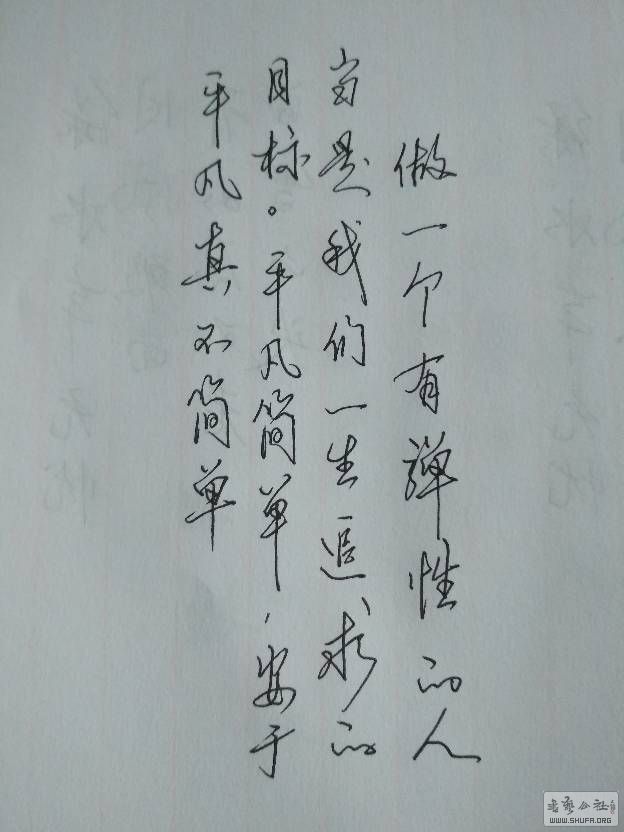 做一个有弹性的人
当是我们一生追求的
目标。平凡简单，安于
平凡真不简单
WWW.SHUFA.ORG